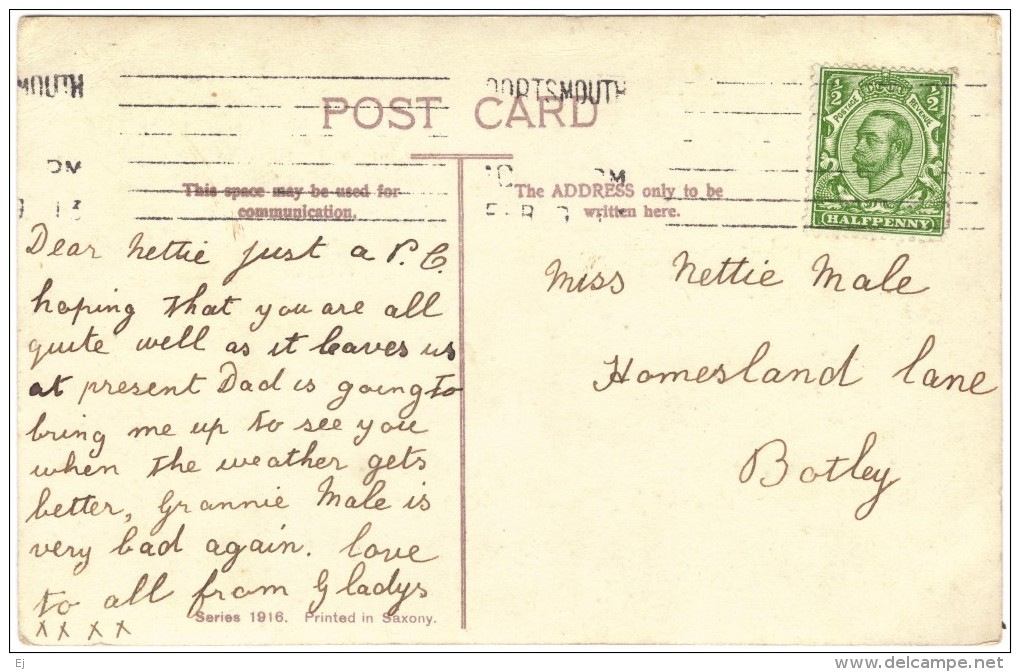 MOUTH
PORTSMOUTH
POST CARD
PM
PM
13
This space may be used for
communication.
The ADDRESS only to be
written here.
1/2
1/2
POSTAGE
REVENUE
HALFPENNY
Dear Nettie just a P.C.
hoping that you are all
quite well as it leaves us
at present Dad is going to
bring me up to see you
when the weather gets
better, Grannie Male is
very bad again. love
to all from Gladys
x x x x
Miss Nettie Male
Homesland lane
Botley
Series 1916. Printed in Saxony.
Ej
http://www.delcampe.net